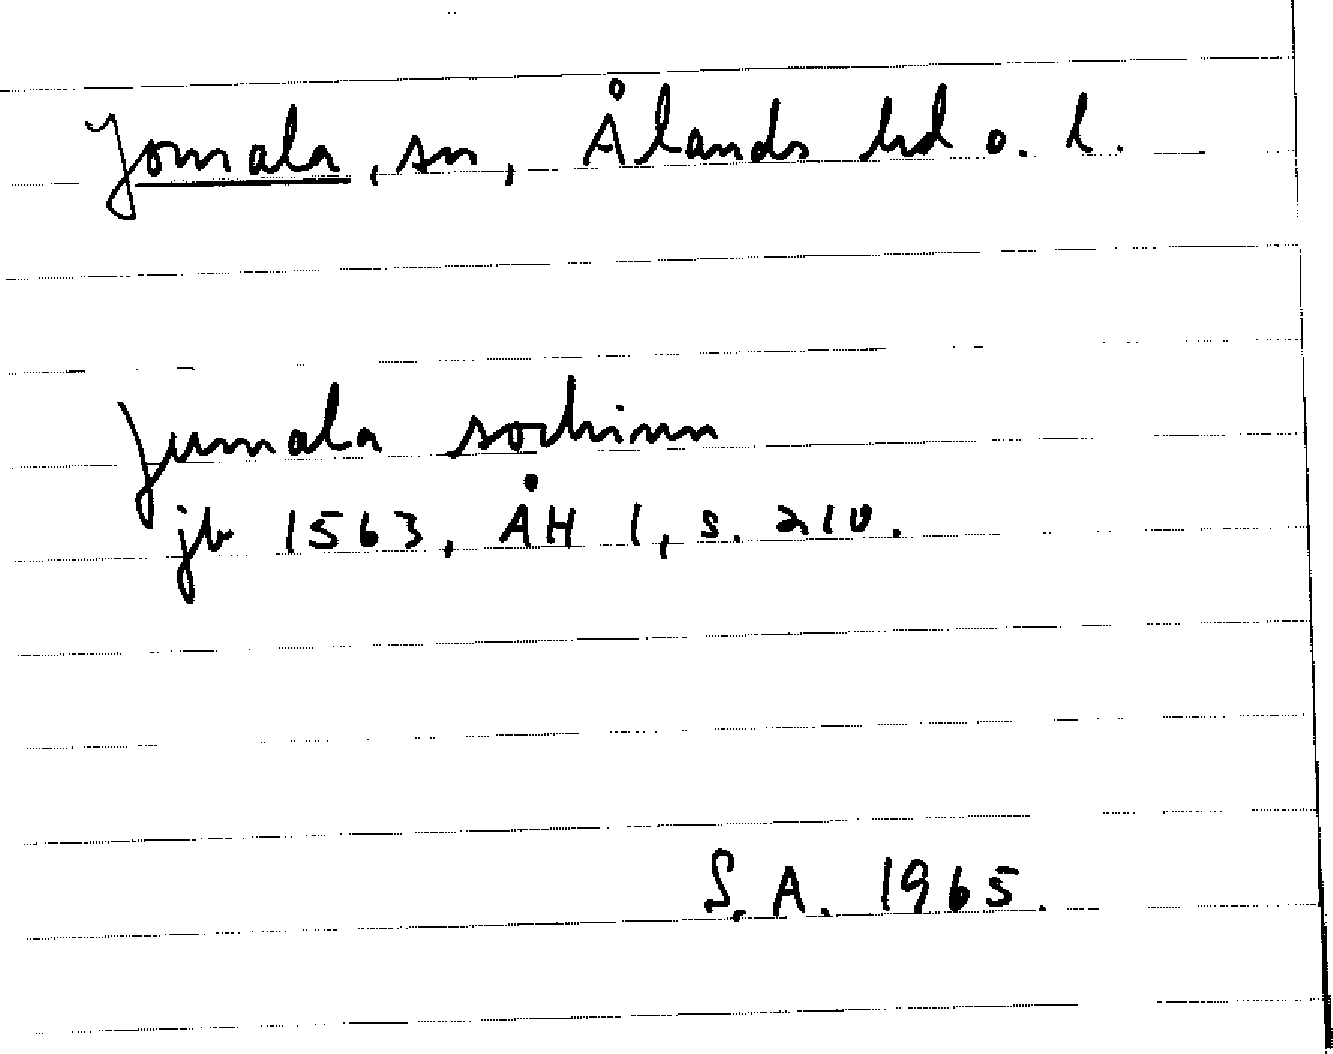 Jomala, sn, Ålands hd o. l.
Jumala sochinn
jb 1563, ÅH 1, s. 210.
S.A. 1965.